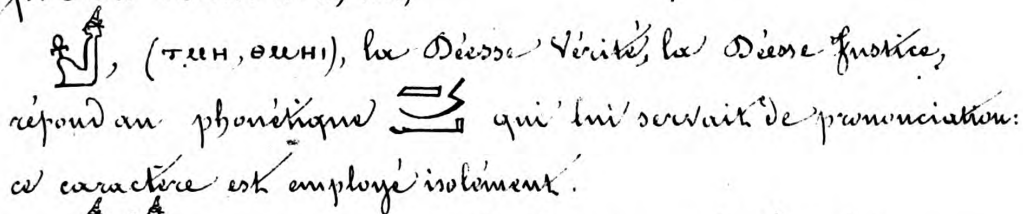 𓁦, (ⲧⲙⲏ, ⲑⲙⲏⲓ), la Déesse Vérité, la Déesse Justice,
répond au phonétique qui lui servait de prononciation:
ce caractère est employé isolément.